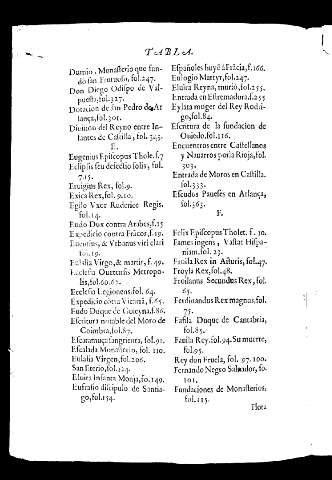 TABLA.
Dumio, Monasterio que fun-
dò san Frutuoso, fol.247.
Don Diego Obispo de Val-
puesta, fol.327.
Dotacion de san Pedro de Ar
lança, fol.301.
Diuision del Reyno entre In-
fantes de Castilla, fol. 343.
E.
Eugenius Episcopus Thole. f.7
Eclipsis seu defectio solis, fol.
7.15.
Eruigius Rex, fol.9.
Exica Rex, fol.9.10.
Egilo Vxor Ruderice Regis.
fol.14.
Eudo Dux contra Arabes, f.15
Expedicio contra Frãcos, f.19.
Euentius, & Vrbanus viri clari
fo.19.
Eulalia Virgo, & martir, f.49.
Ecclesia Ouetensis Metropo-
lis, fol.60.62.
Ecclesia Legionens. fol. 64.
Expedicio cõtra Viscaiã, f.65.
Eudo Duque de Guiayna, f.86.
Escritura notable del Moro de
Coimbra, fol.87.
Escaramuça sangrienta, fol.91.
Escalada Monasterio, fol. 110.
Eulalia Virgen, fol.206.
San Eiterio, fol.124.
Eluira Infanta Monja, fo.149.
Eufrasio discipulo de Santia-
go, fol.154.
Españoles huyẽ à Frãcia, f.166.
Eulogio Martyr, fol.247.
Eluira Reyna, murio, fol.255.
Entrada en Estremadura, f.255
Eylata muger del Rey Rodri-
go, fol.84.
Escritura de la fundacion de
Ouiedo, fol.116.
Encuentros entre Castellanos
y Nauarros por la Rioja, fol.
303.
Entrada de Moros en Castilla.
fol.333.
Escudos Paueses en Atlança,
fol.363.
F.
Felix Episcopus Tholet. f. 10.
Fames ingens, Vastat Hispa-
niam, fol.23.
Fauila Rex in Asturis, fol.47.
Froyla Rex, fol.48.
Froilanus Secundus Rex, fol.
65.
Ferdinandus Rex magnus, fol.
75.
Fafila Duque de Cantabria,
fol.85.
Fauila Rey. fol.94. Su muerte,
fol.95.
Rey don Fruela, fol. 97.100.
Fernando Negro Saluador, fo.
101.
Fundaciones de Monasterios,
fol.115.
Flota